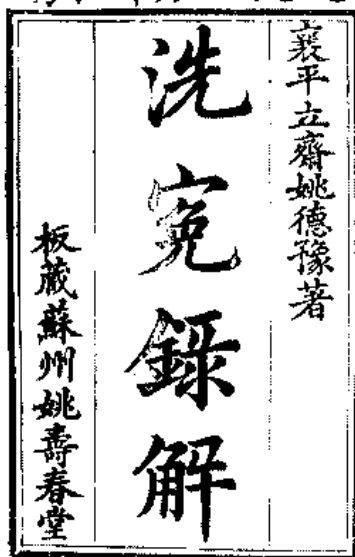 襄平立齋姚德豫著
洗寃錄解
板藏蘇州姚壽春堂